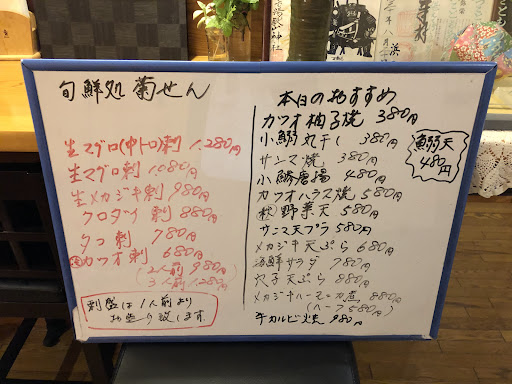 旬鮮処 菊せん
生マグロ(中トロ)刺 1,280円
生マグロ刺 1,080円
生メカジキ刺 980円
クロダイ刺 880円
タコ刺 780円
カツオ刺 680円
(2人前 980円)
(3人前 1,280円)
刺盛は1人前より
お造り致します
本日のおすすめ
カツオ柚子焼 380円
小鰯丸干し 380円
サンマ焼 380円
小鱗唐揚 480円
カツオハラス焼 580円
秋 野菜天 580円
サンマ天プラ 580円
メカジキ天ぷら 680円
海鮮サラダ 780円
穴子天ぷら 880円
メカジキハーモニカ煮 880円
(ハーフ 580円)
牛カルビ焼 980円
鰯天
480円